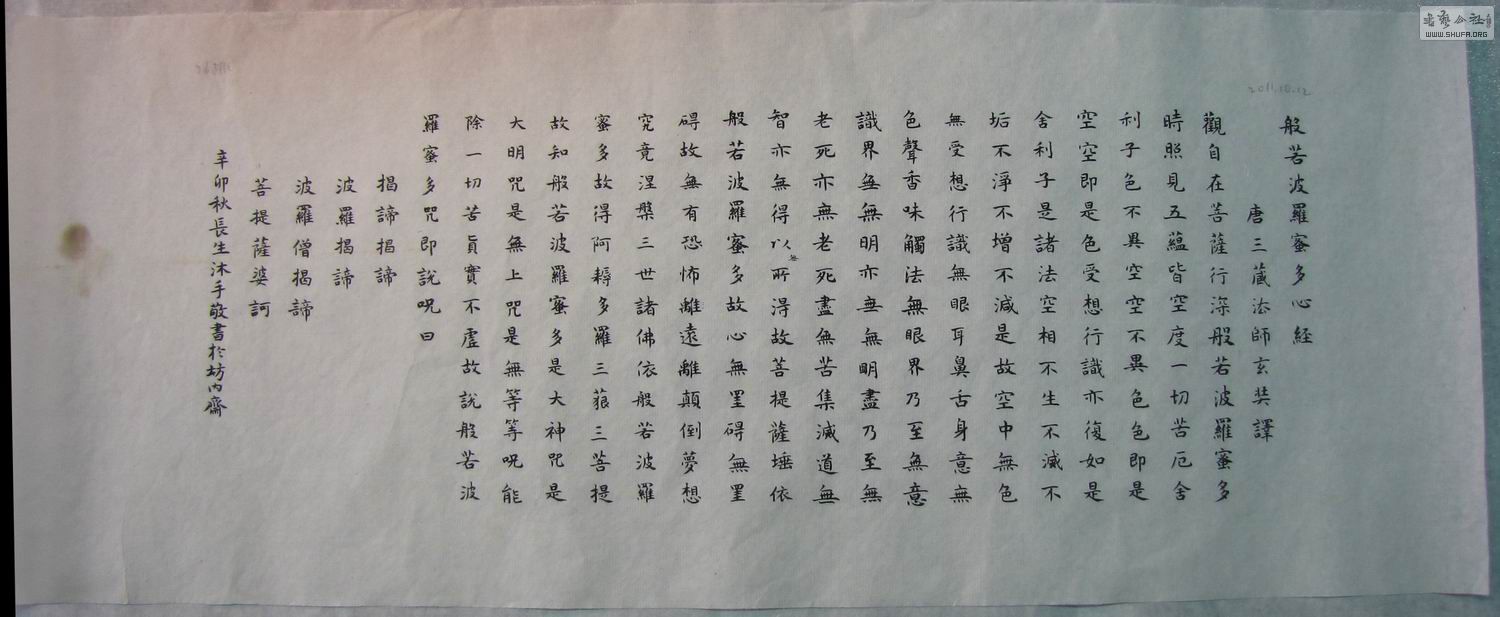 2011.10.12
般若波羅蜜多心経
唐三藏法師玄奘譯
觀自在菩薩行深般若波羅蜜多
時照見五蘊皆空度一切苦厄舍
利子色不異空空不異色色即是
空空即是色受想行識亦復如是
舍利子是諸法空相不生不滅不
垢不淨不增不減是故空中無色
無受想行識無眼耳鼻舌身意無
色聲香味觸法無眼界乃至無意
識界無無明亦無無明盡乃至無
老死亦無老死盡無苦集滅道無
智亦無得以無所得故菩提薩埵依
般若波羅蜜多故心無罣碍無罣
碍故無有恐怖離遠離顛倒夢想
究竟涅槃三世諸佛依般若波羅
蜜多故得阿耨多羅三藐三菩提
故知般若波羅蜜多是大神咒是
大明咒是無上咒是無等等呪能
除一切苦真實不虛故說般若波
羅蜜多咒即說呪曰
揭諦揭諦
波羅揭諦
波羅僧揭諦
菩提薩婆訶
辛卯秋長生沐手敬書於坊内齋
WWW.SHUFA.ORG